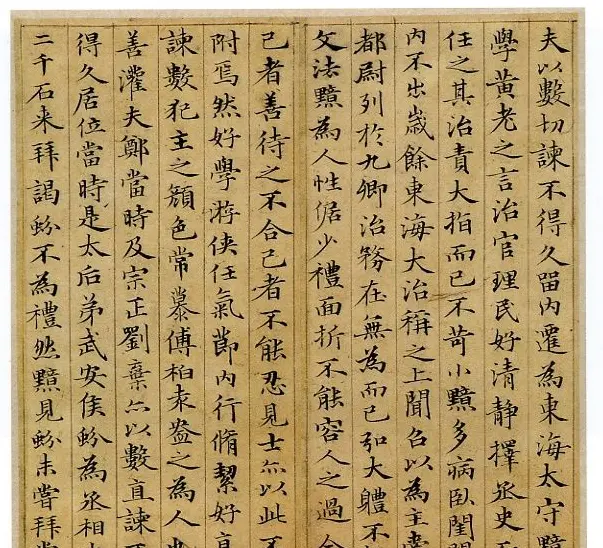 夫以數切諫不得久留內遷為東海太守黯
學黃老之言治官理民好清靜擇丞史
任之其治責大指而已不苛小黯多病臥閨
內不出歲餘東海大治稱之上聞召以為主
都尉列於九卿治務在無為而已弘大軆不
文法黯為人性倨少禮面折不能容人之過合
己者善待之不合己者不能忍見士亦以此不
附焉然好學游俠任氣節內行脩絜好直
諫數犯主之顏色常慕傅柏袁盎之為人也
善灌夫鄭當時及宗正劉棄亦以數直諫不
得久居位當時是太后弟武安侯蚡為丞相
二千石来拜謁蚡不為禮然黯見蚡未嘗拜常